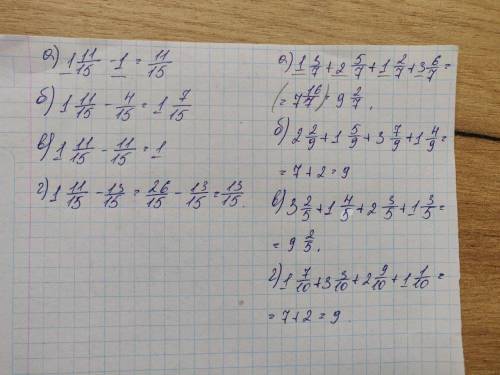 а) 1 11/15 - 1 = 11/15
б) 1 11/15 - 4/15 = 1 7/15
в) 1 11/15 - 11/15 = 1
г) 1 11/15 - 13/15 = 26/15 - 13/15 = 13/15.
а) 1 3/7 + 2 5/7 + 1 2/7 + 3 6/7 =
(= 7 16/7) = 9 2/7.
б) 2 2/9 + 1 5/9 + 3 7/9 + 1 4/9 =
= 7 + 2 = 9
в) 3 2/5 + 1 4/5 + 2 3/5 + 1 3/5 =
= 9 2/5.
г) 1 7/10 + 3 3/10 + 2 9/10 + 1 1/10 =
= 7 + 2 = 9.